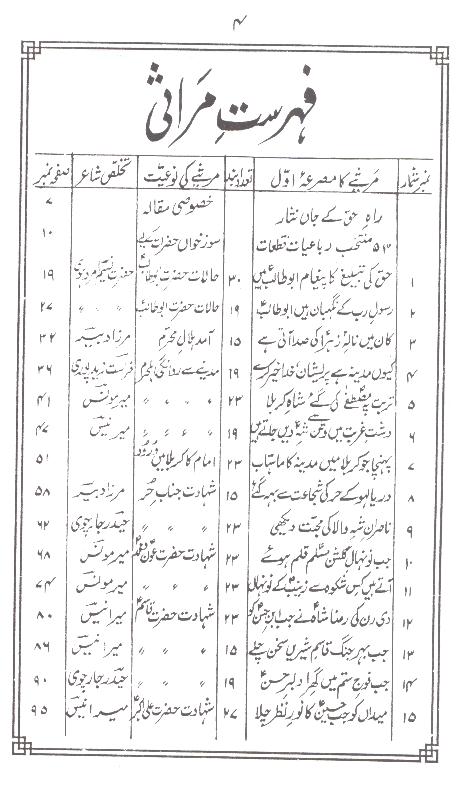 ۴
فہرستِ مراثی
نمبر شمار مرثیے کا مصرعۂ اوّل تعداد بند مرثیے کی نوعیت تخلّص شاعر صفحہ نمبر
راہِ حق کے جاں نثار خصوصی مقالہ ۷
۵۴ منتخب رباعیات قطعات سوز خواں حضرت کیلئے ۱۰
۱ حق کی تبلیغ کا پیغام ابو طالبؑ ہیں ۳۰ حالات حضرت ابو طالبؑ حضرت نسیم امروہوی ۱۹
۲ رسولِ رب کے نگہبان ہیں ابو طالبؑ ۱۹ حالات حضرت ابو طالبؑ 〃 〃 ۲۷
۳ کان میں نالۂ زہراؑ کی صدا آتی ہے ۱۵ آمد ہلالِ محرم مرزا دبیرؔ ۳۲
۴ کیوں مدینہ ہے پریشان خدا خیر کرے ۱۹ مدینے سے روانگی محرم فراست زیدپوری ۳۶
۵ تربت پہ مصطفےٰؐ کی گئے شاہِ کربلا ۲۳ 〃 〃 〃 میر مونسؔ ۴۱
۶ دشتِ غربت میں وطن سے شہِ دیں جاتے ہیں ۱۹ 〃 〃 〃 میر انیسؔ ۴۷
۷ پہنچا جو کربلا میں مدینہ کا ماہتاب ۲۳ امام کا کربلا میں ورُود ۵۱
۸ دریا لہو کے حر کی شجاعت سے بہہ گئے ۱۵ شہادت جناب حُر مرزا دبیرؔ ۵۸
۹ ناصرانِ شہِ والا کی محبت دیکھی ۲۳ 〃 〃 〃 حیدر جارچوی ۶۲
۱۰ جب نونہالِ گلشنِ مسلم قلم ہوئے ۲۳ شہادت حضرت عونؑ و محمدؑ میر مونسؔ ۶۸
۱۱ آتے ہیں کس شکوہ سے زینبؑ کے نونہال ۲۳ 〃 〃 〃 میر مونسؔ ۷۴
۱۲ دی رن کی رضا شاہؑ نے جب ابنِ حسنؑ کو ۲۳ شہادت حضرت قاسمؑ میر انیسؔ ۸۰
۱۳ جب بہرِ جنگ قاسمِ شیریں سخن چلے ۱۵ 〃 〃 〃 میر انیسؔ ۸۶
۱۴ جب فوجِ ستم میں گھرا دلبرِ حسنؑ ۱۹ 〃 〃 〃 حیدر جارچوی ۹۰
۱۵ میداں کو جب حسینؑ کا نورِ نظر چلا ۲۷ شہادت حضرت علی اکبرؑ میر انیسؔ ۹۵